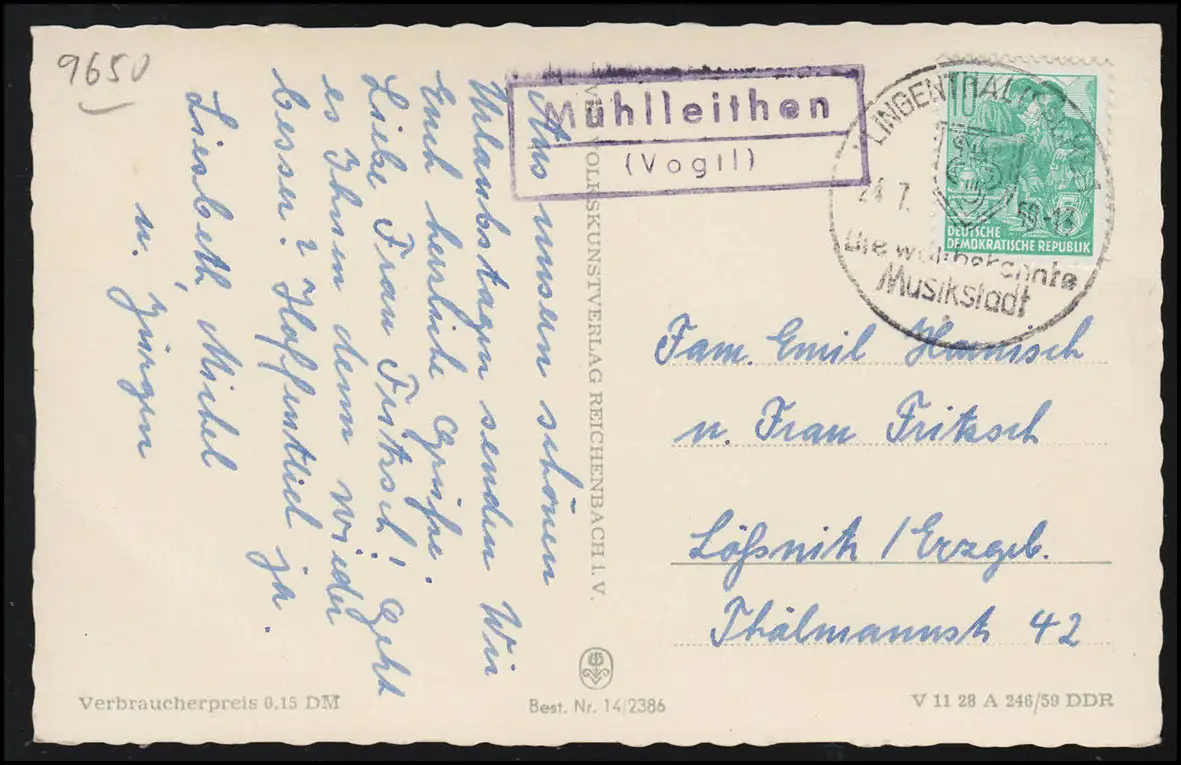 9650
Mühlleithen
(Vogtl)
KLINGENTHAL
24.7.59-18
die weltbekannte
Musikstadt
10
5
DEUTSCHE
DEMOKRATISCHE REPUBLIK
Aus unseren schönen
Urlaubstagen senden Wir
Euch herzliche Grüße.
Liebe Frau Fritzsch! Geht
es Ihnen denn wieder
besser? Hoffentlich ja.
Liesbeth, Michel
u. Jürgen
VOLKSKUNSTVERLAG REICHENBACH i. V.
Fam. Emil Harnisch
u. Frau Fritzsch
Lößnitz / Erzgeb.
Thälmannstr 42
Verbraucherpreis 0.15 DM
Best. Nr. 14/2386
V 11 28 A 246/59 DDR